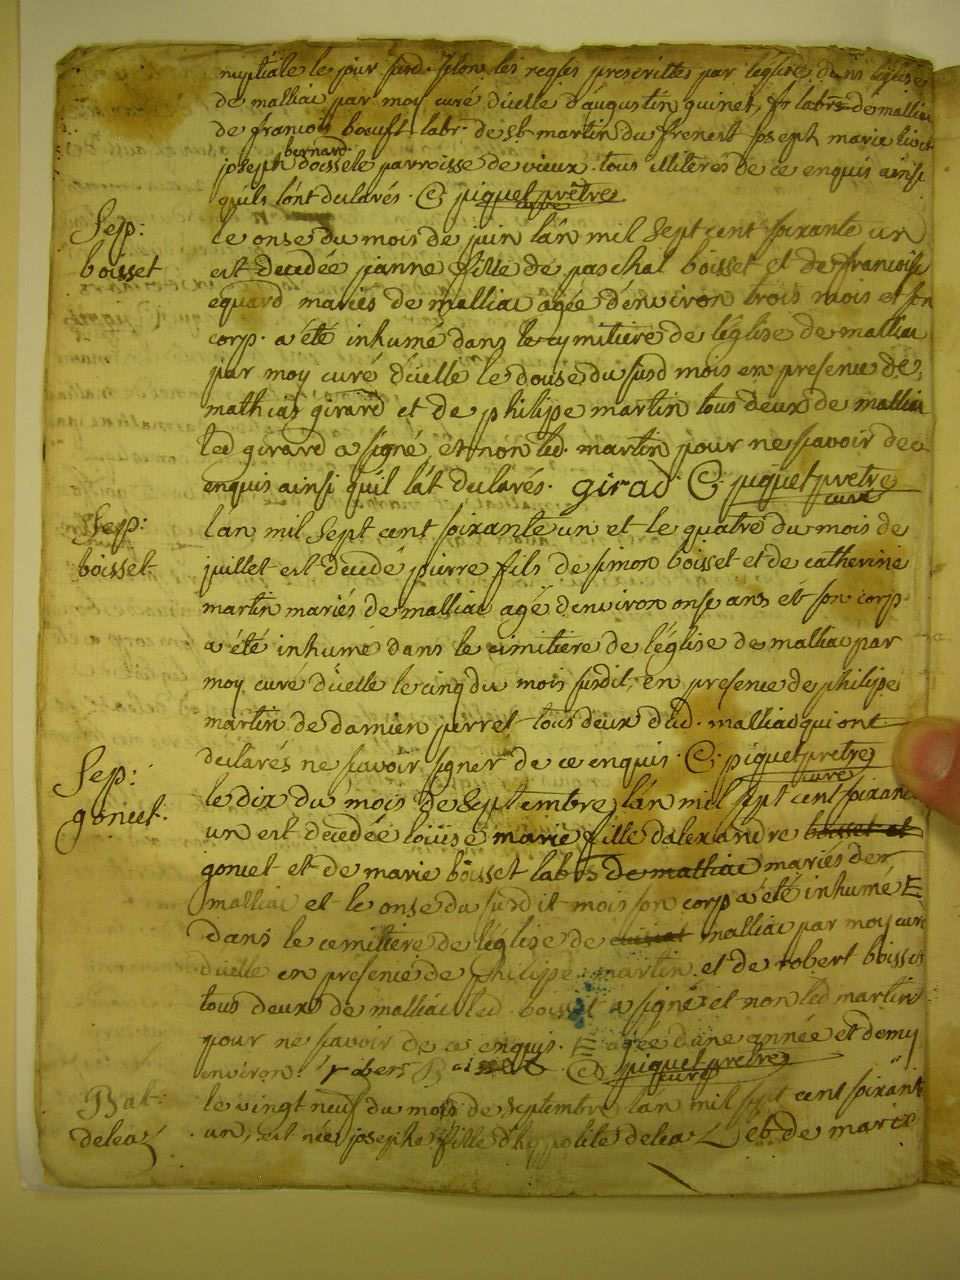 nuptiale le jour susd. selon les regles prescrittes par l'église, dans l'église
de malliac par moy curé d'uelle d'augustin quinet, labrs de malliac
de francois boeuft labr. de st martin du frenest joseph marie
bernard
joseph dossele parroisse de vieux. tous illiterés de ce enquis ainsi
quils l'ont declarés. piquet prêtre
curé
Sep:
boisset
le onse du mois de juin l'an mil sept cent soixante un
est decedée janne fille de paschal boisset et de francoise
equard mariés de malliac agée d'environ trois mois et son
corp. a été inhumé dans le cymitiere de l'église de malliac
par moy curé d'uelle le douse du susd mois en presence de
mathias girard et de philipe martin tous deux de malliac
led girard a signé, et non led. martin pour ne scavoir de ce
enquis ainsi quil l'at declarés. girad piquet pretre
curé
Sep:
boisset
lan mil sept cent soixante un et le quatre du mois de
juillet est decedé pierre fils de simon boisset et de catherine
martin mariés de malliac agé d'environ onse ans et son corp
a été inhumé dans le cimitiere de l'église de malliac par
moy curé d'uelle le cinq du mois susdit, en presence de philipe
martin de damien perret tous deux dud. malliac qui ont
declarés ne scavoir signer de ce enquis. piquet pretre
curé
Sep:
goniet.
le dix du mois de septembre l'an mil sept cent soixante
un est decedée louise marie fille d'alexandre boisset et
goniet et de marie boisset labrs de malliac mariés de
malliac et le onse du susdit mois son corp a été inhumé
dans le cemitiere de l'église de malliac par moy curé
d'uelle en presence de philippe martin et de robert boisset
tous deux de malliac led. boisset a signé et non led martin
pour ne scavoir de ce enquis. agée d'une année et demy
environ. robert piquet pretre
curé
Bat:
deleaz
le vingt neuf du mois de septembre lan mil sept cent soixante
un, est née josephe fille d'hyppolite deleaz et de marie